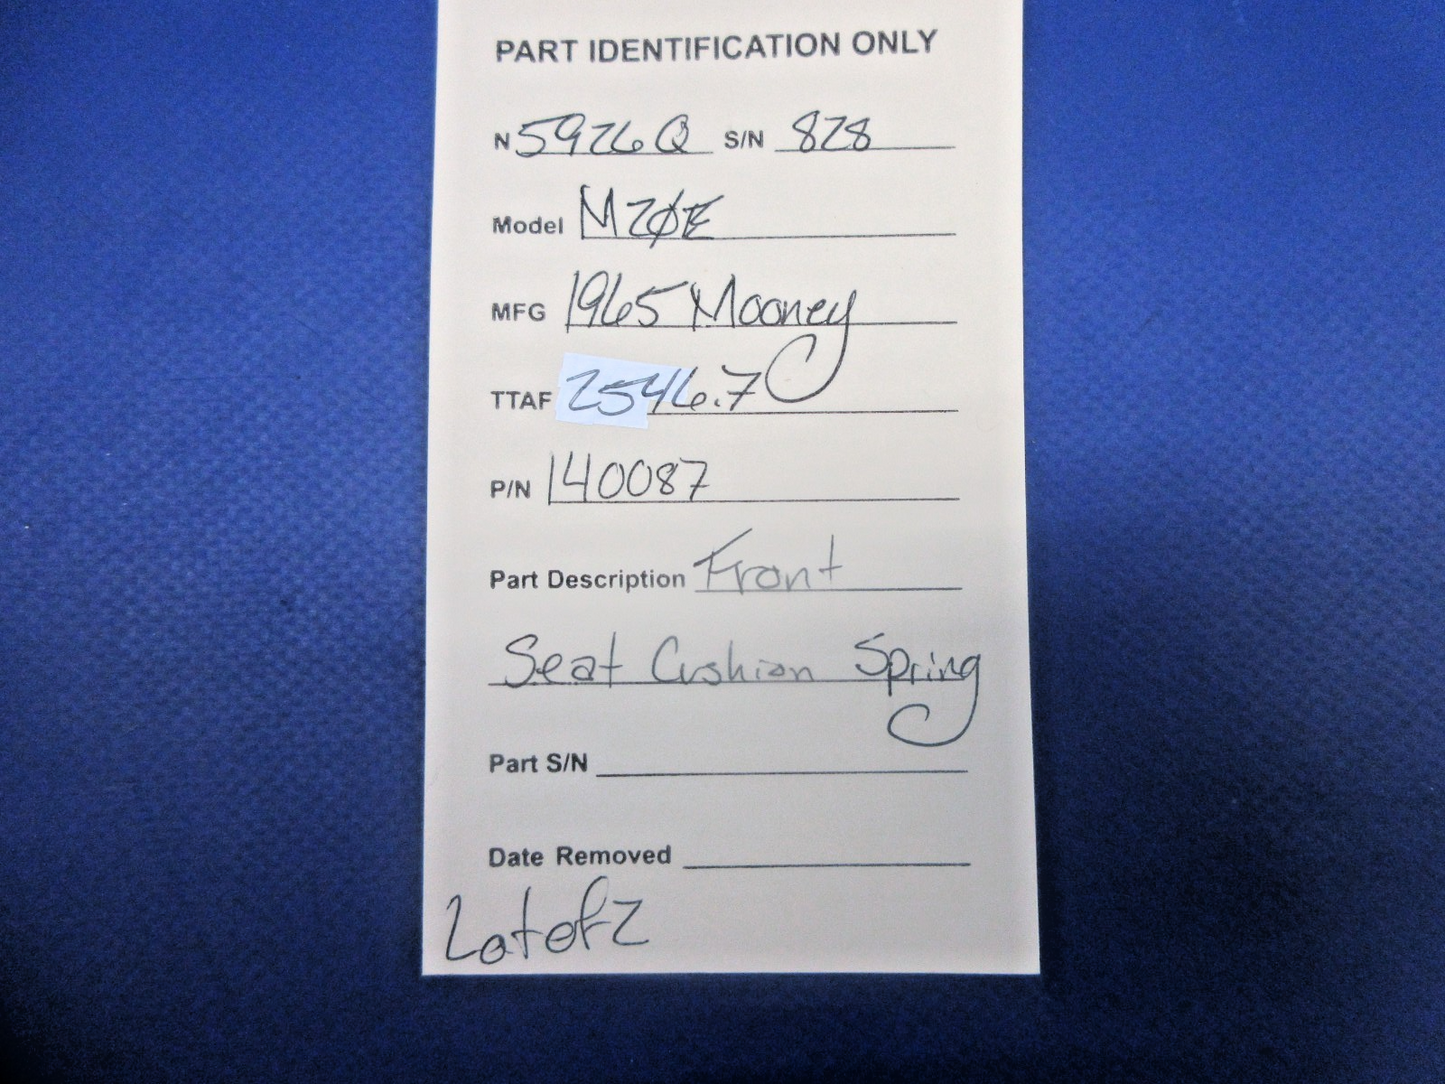 PART IDENTIFICATION ONLY
N 5926Q S/N 828
Model M20E
MFG 1965 Mooney
TTAF 2546.7
P/N 140087
Part Description Front
Seat Cushion Spring
Part S/N
Date Removed
Lot of 2